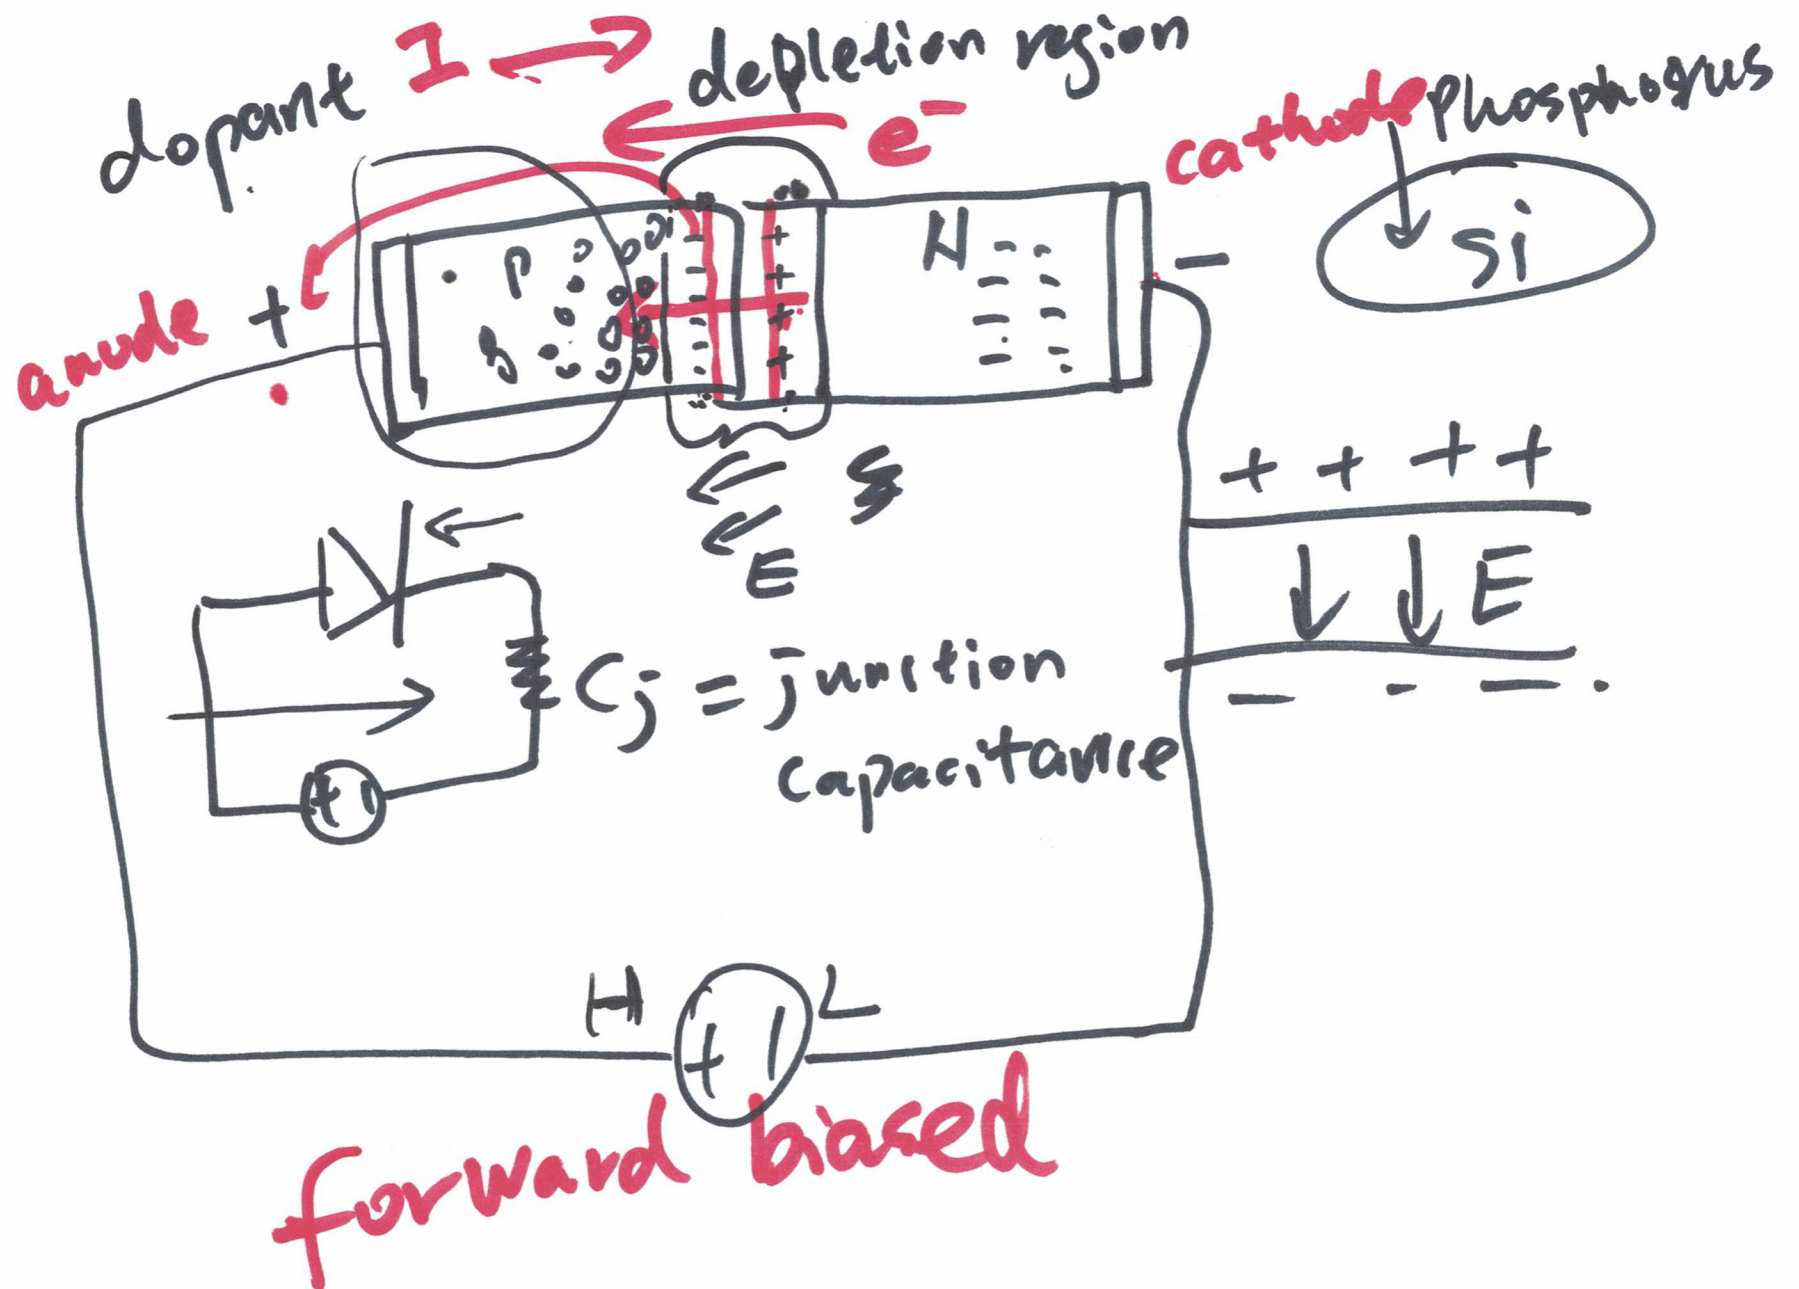 dopant
I
depletion region
e-
cathode
phosphorus
Si
anode
+
p
N
-
- - - - -
+ + + +
E
+ + + +
E
- - - -
Cj = junction
capacitance
+ -
H
L
+ -
forward biased